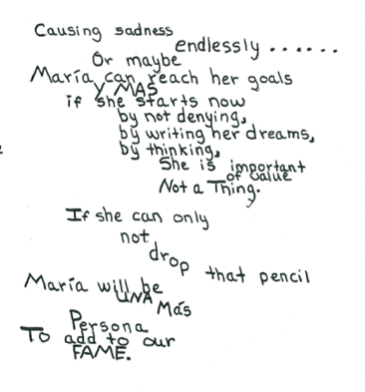 Causing sadness
endlessly ......
Or maybe
María can reach her goals
Y MAS
if she starts now
by not denying,
by writing her dreams,
by thinking,
She is important
of value
Not a Thing.
If she can only
not
drop that pencil
María will be
UNA Más
Persona
To add to our
FAME.